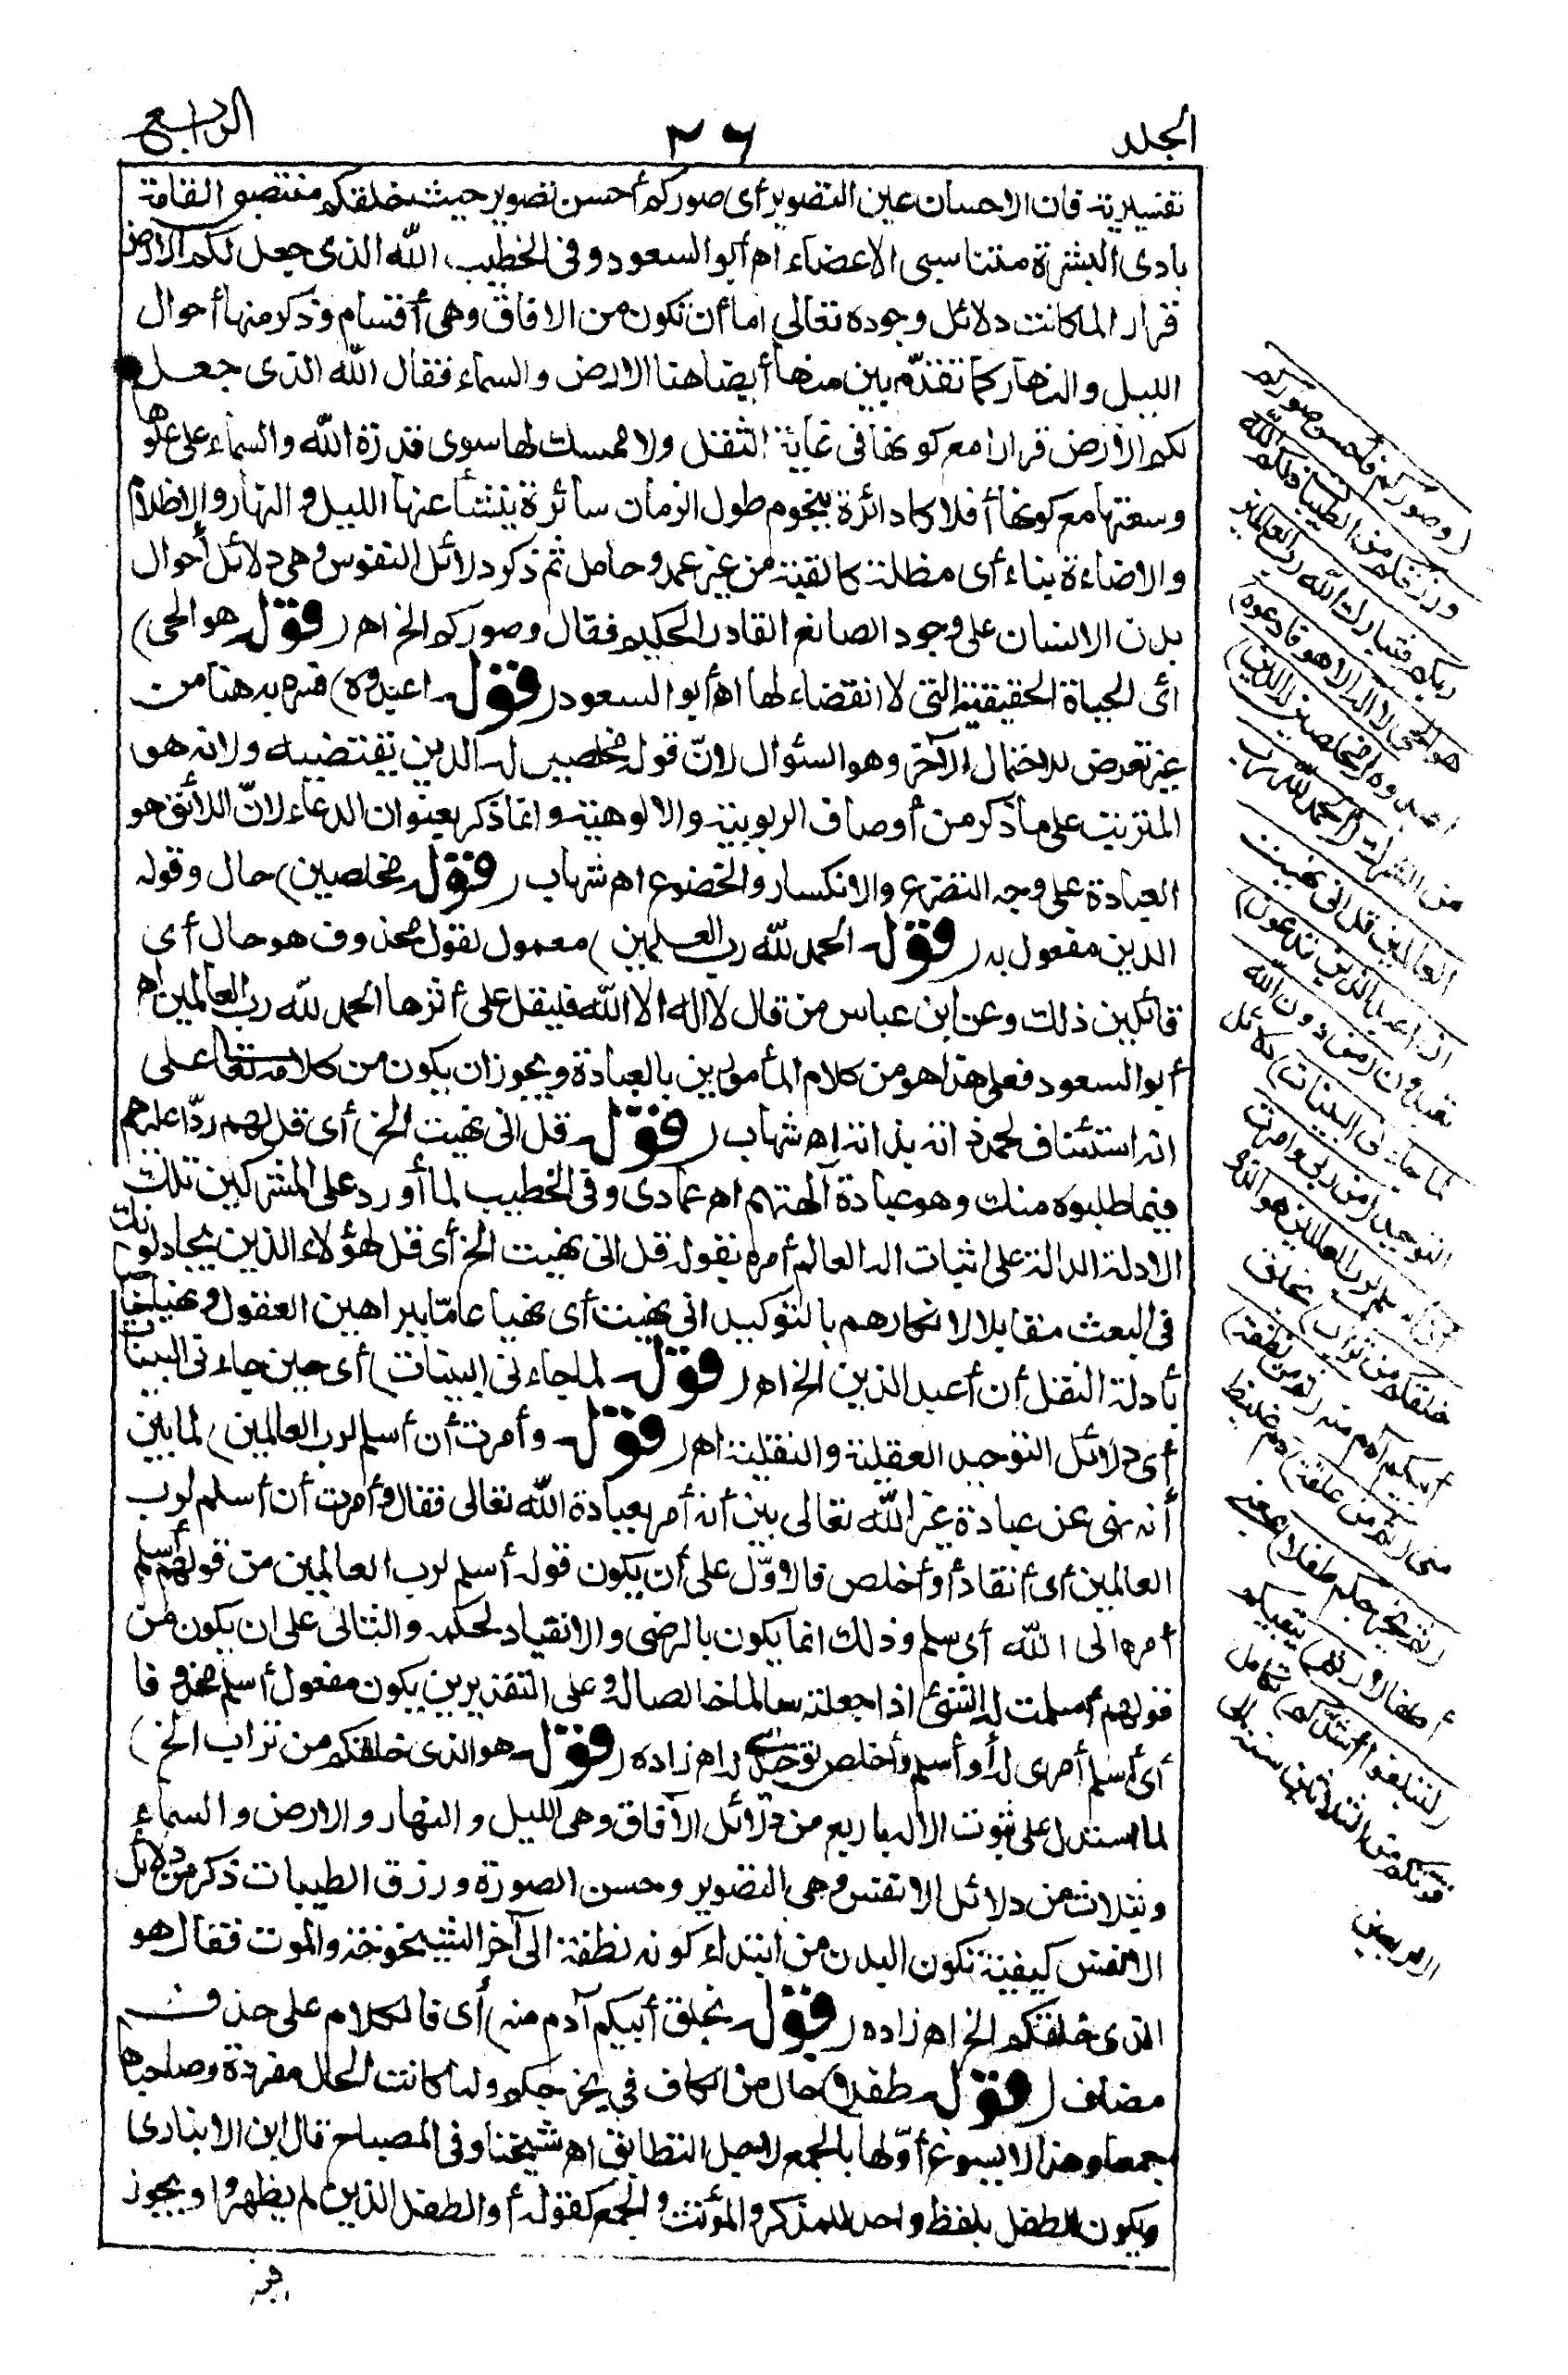 الجلد
٢٦
الرابع
تفسيرية فان الاحسان عين التصوير أى صوركم أحسن تصوير حيث خلقكم منتصبى القامة
بادى البشرة متناسبى الاعضاء اه أبو السعود وفى الخطيب الله الذى جعل لكم الارض
قرارا لما كانت دلائل وجوده تعالى اما أن تكون من الافاق وهى أقسام وذكر منها أحوال
الليل والنهار كما تقدّم بين منها أيضا هنا الارض والسماء فقال الله الذى جعل
لكم الارض قرارا مع كونها فى غاية الثقل ولا ممسك لها سوى قدرة الله والسماء على علوها
وسعتها مع كونها أفلاكا دائرة بنجوم طول الزمان سائرة ينشأ عنها الليل والنهار والاظلام
والاضاءة بناء أى مظلة كالقبة من غير عمد وحامل ثم ذكر دلائل النفوس وهى دلائل أحوال
بدن الانسان على وجود الصانع القادر الحكيم فقال وصوركم الخ اه (قوله هو الحى)
أى الحياة الحقيقية التى لا انقضاء لها اه أبو السعود (قوله اعبدوه) فسره به هنا من
غير تعرض للاحتمال الآخر وهو السئوال لانّ قوله مخلصين له الدين يقتضيه ولانه هو
المترتب على ما ذكر من أوصاف الربوبية والالوهية وانما ذكر بعنوان الدعاء لانّ اللائق هو
العبادة على وجه التضرع والانكسار والخضوع اه شهاب (قوله مخلصين) حال وقوله
الدين مفعول به (قوله الحمد لله رب العلمين) معمول لقول محذوف هو حال أى
قائلين ذلك وعن ابن عباس من قال لا اله الا الله فليقل على أثرها الحمد لله رب العالمين اه
أبو السعود فعلى هذا هو من كلام المأمورين بالعبادة ويجوز ان يكون من كلامه تعالى على
انه استئناف لحمد ذاته بذاته اه شهاب (قوله قل انى نهيت الخ) أى قل لهم ردّا عليهم
فيما طلبوه منك وهو عبادة آلهتهم اه عمادى وفى الخطيب لما أورد على المشركين تلك
الادلة الدالة على اثبات اله العالم أمره بقوله قل انى نهيت الخ أى قل لهؤلاء الذين يجادلونك
فى البعث مقابلا لانكارهم بالتوكيد انى نهيت أى نهيا عامّا ببراهين العقول ونهيا خاصا
بأدلة النقل أن أعبد الذين الخ اه (قوله لما جاءنى البينات) أى حين جاءنى البينات
أى دلائل التوحيد العقلية والنقلية اه (قوله وأمرت أن أسلم لرب العالمين) لما بين
أنه نهى عن عبادة غير الله تعالى بين أنه أمر بعبادة الله تعالى فقال وأمرت أن أسلم لرب
العالمين أى أنقاد أو أخلص فالاوّل على أن يكون قوله أسلم لرب العالمين من قولهم أسلم
أمره الى الله أى سلم وذلك انما يكون بالرضى والانقياد لحكمه والثانى على ان يكون من
قولهم أسلمت له الشئ اذا جعلته سالما خالصا له وعلى التقديرين يكون مفعول أسلم محذوفا
أى أسلم أمرى له أو أسلم وأخلص توحيدى له اه زاده (قوله هو الذى خلقكم من تراب الخ)
لما استدل على ثبوت الالهية باربع من دلائل الآفاق وهى الليل والنهار والارض والسماء
وبثلاث من دلائل الانفس وهى التصوير وحسن الصورة ورزق الطيبات ذكر من دلائل
الانفس كيفية تكون البدن من ابتداء كونه نطفة الى آخر الشيخوخة والموت فقال هو
الذى خلقكم الخ اه زاده (قوله بخلق أبيكم آدم منه) أى فالكلام على حذف
مضاف (قوله طفلا) حال من الكاف فى يخرجكم ولما كانت الحال مفردة وصاحبها
جمعا وهذا لا يسوغ أوّلها بالجمع لاجل التطابق اه شيخنا وفى المصباح قال ابن الانبارى
ويكون الطفل بلفظ واحد للمذكر والمؤنث والجمع كقوله أو الطفل الذين لم يظهروا ويجوز
(وصوركم فأحسن صوركم
ورزقكم من الطيبات ذلكم الله
ربكم فتبارك الله رب العالمين
هو الحى لا اله الا هو فادعوه)
اعبدوه (مخلصين له الدين)
من الشرك (الحمد لله رب
العالمين قل انى نهيت
أن أعبد الذين تدعون)
تعبدون (من دون الله
لما جاءنى البينات) دلائل
التوحيد (من ربى وأمرت
أن أسلم لرب العالمين هو الذى
خلقكم من تراب) بخلق
أبيكم آدم منه (ثم من نطفة)
منى (ثم من علقة) دم غليظ
(ثم يخرجكم طفلا) بمعنى
أطفالا (ثم) يبقيكم
(لتبلغوا أشدكم) تكامل
قوتكم من الثلاثين سنة الى
الاربعين